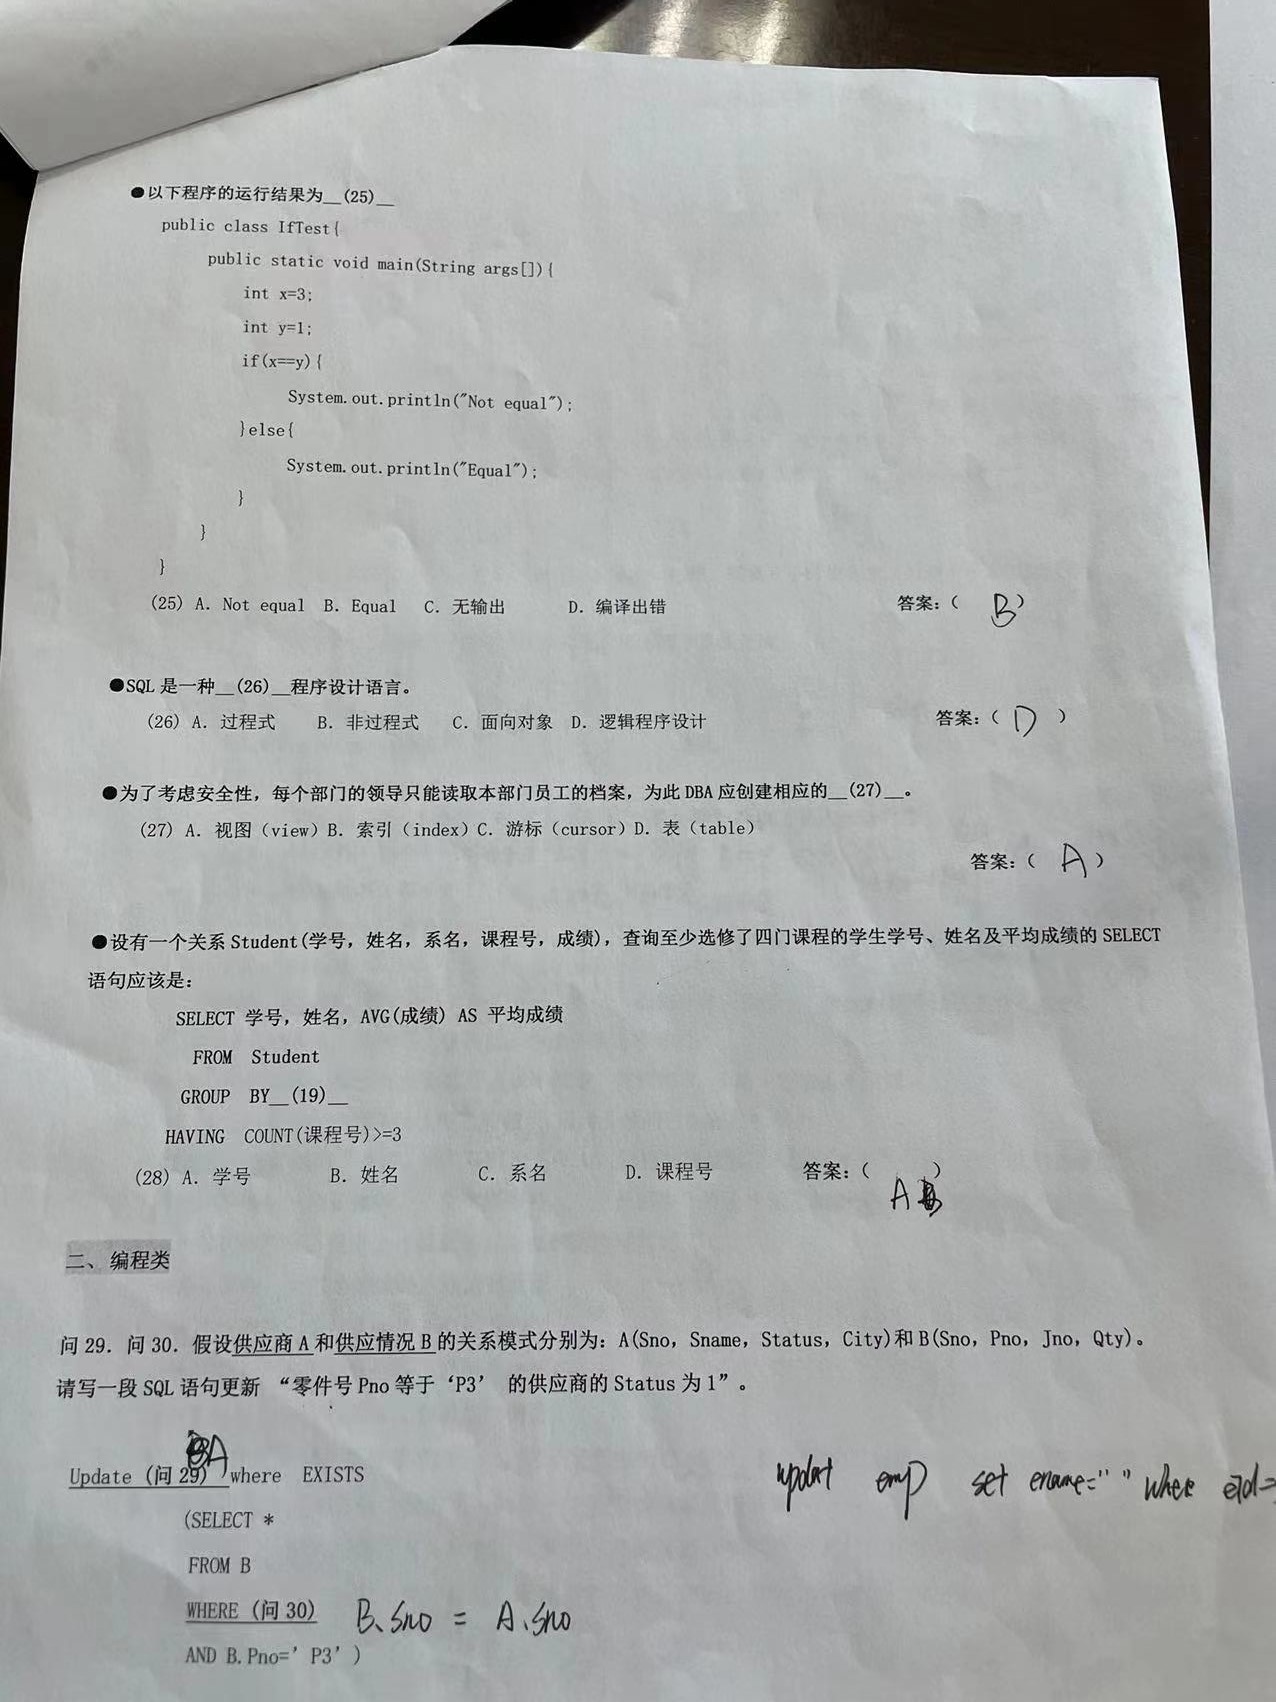 ●以下程序的运行结果为__(25)__
public class IfTest{
public static void main(String args[]){
int x=3;
int y=1;
if(x==y){
System.out.println("Not equal");
}else{
System.out.println("Equal");
}
}
}
(25) A. Not equal B. Equal C. 无输出 D. 编译出错 答案:( B )
●SQL 是一种__(26)__程序设计语言。
(26) A. 过程式 B. 非过程式 C. 面向对象 D. 逻辑程序设计 答案:( D )
●为了考虑安全性，每个部门的领导只能读取本部门员工的档案，为此 DBA 应创建相应的__(27)__。
(27) A. 视图（view）B. 索引（index）C. 游标（cursor）D. 表（table）
答案:( A )
●设有一个关系 Student(学号，姓名，系名，课程号，成绩)，查询至少选修了四门课程的学生学号、姓名及平均成绩的 SELECT
语句应该是:
SELECT 学号，姓名，AVG(成绩) AS 平均成绩
FROM Student
GROUP BY__(19)__
HAVING COUNT(课程号)>=3
(28) A. 学号 B. 姓名 C. 系名 D. 课程号 答案:( )
A
二、编程类
问 29. 问 30. 假设供应商 A 和供应情况 B 的关系模式分别为: A(Sno, Sname, Status, City)和 B(Sno, Pno, Jno, Qty)。
请写一段 SQL 语句更新 “零件号 Pno 等于‘P3’ 的供应商的 Status 为 1”。
A
Update (问 29) where EXISTS updat emp set ename=" " where eId=
(SELECT *
FROM B
WHERE (问 30) B.sno = A.sno
AND B.Pno=’P3’)